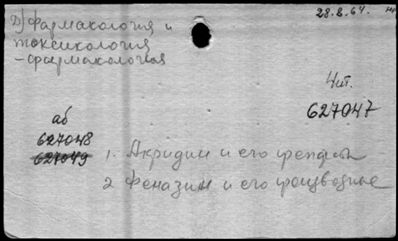 Д) фармакология и
28.8.64.
токсикология
– фармакология
Чит.
627047
аб
627048
627049
1. Акридин и его
2 Феназин и его производные